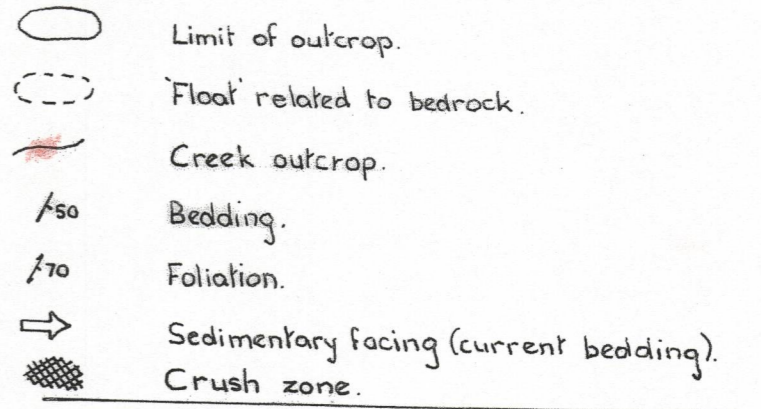 Limit of outcrop.
'Float' related to bedrock.
Creek outcrop.
50 Bedding.
70 Foliation.
Sedimentary facing (current bedding).
Crush zone.